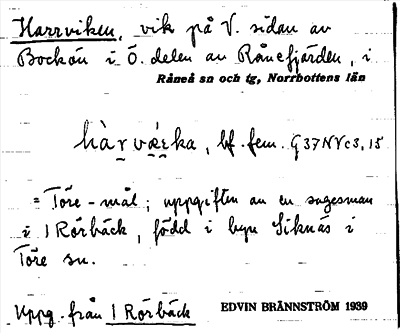 Harrviken, vik på V. sidan av
Bockön i Ö. delen av Rånefjärden, i
Råneå sn och tg, Norrbottens län
hàr̯væ̀r̯ka, bf. fem. G37NVc3,15
= Töre-mål; uppgiften av en sagesman
i 1 Rörbäck, född i byn Siknäs i
Töre sn.
Uppg. från 1 Rörbäck EDVIN BRÄNNSTRÖM 1939